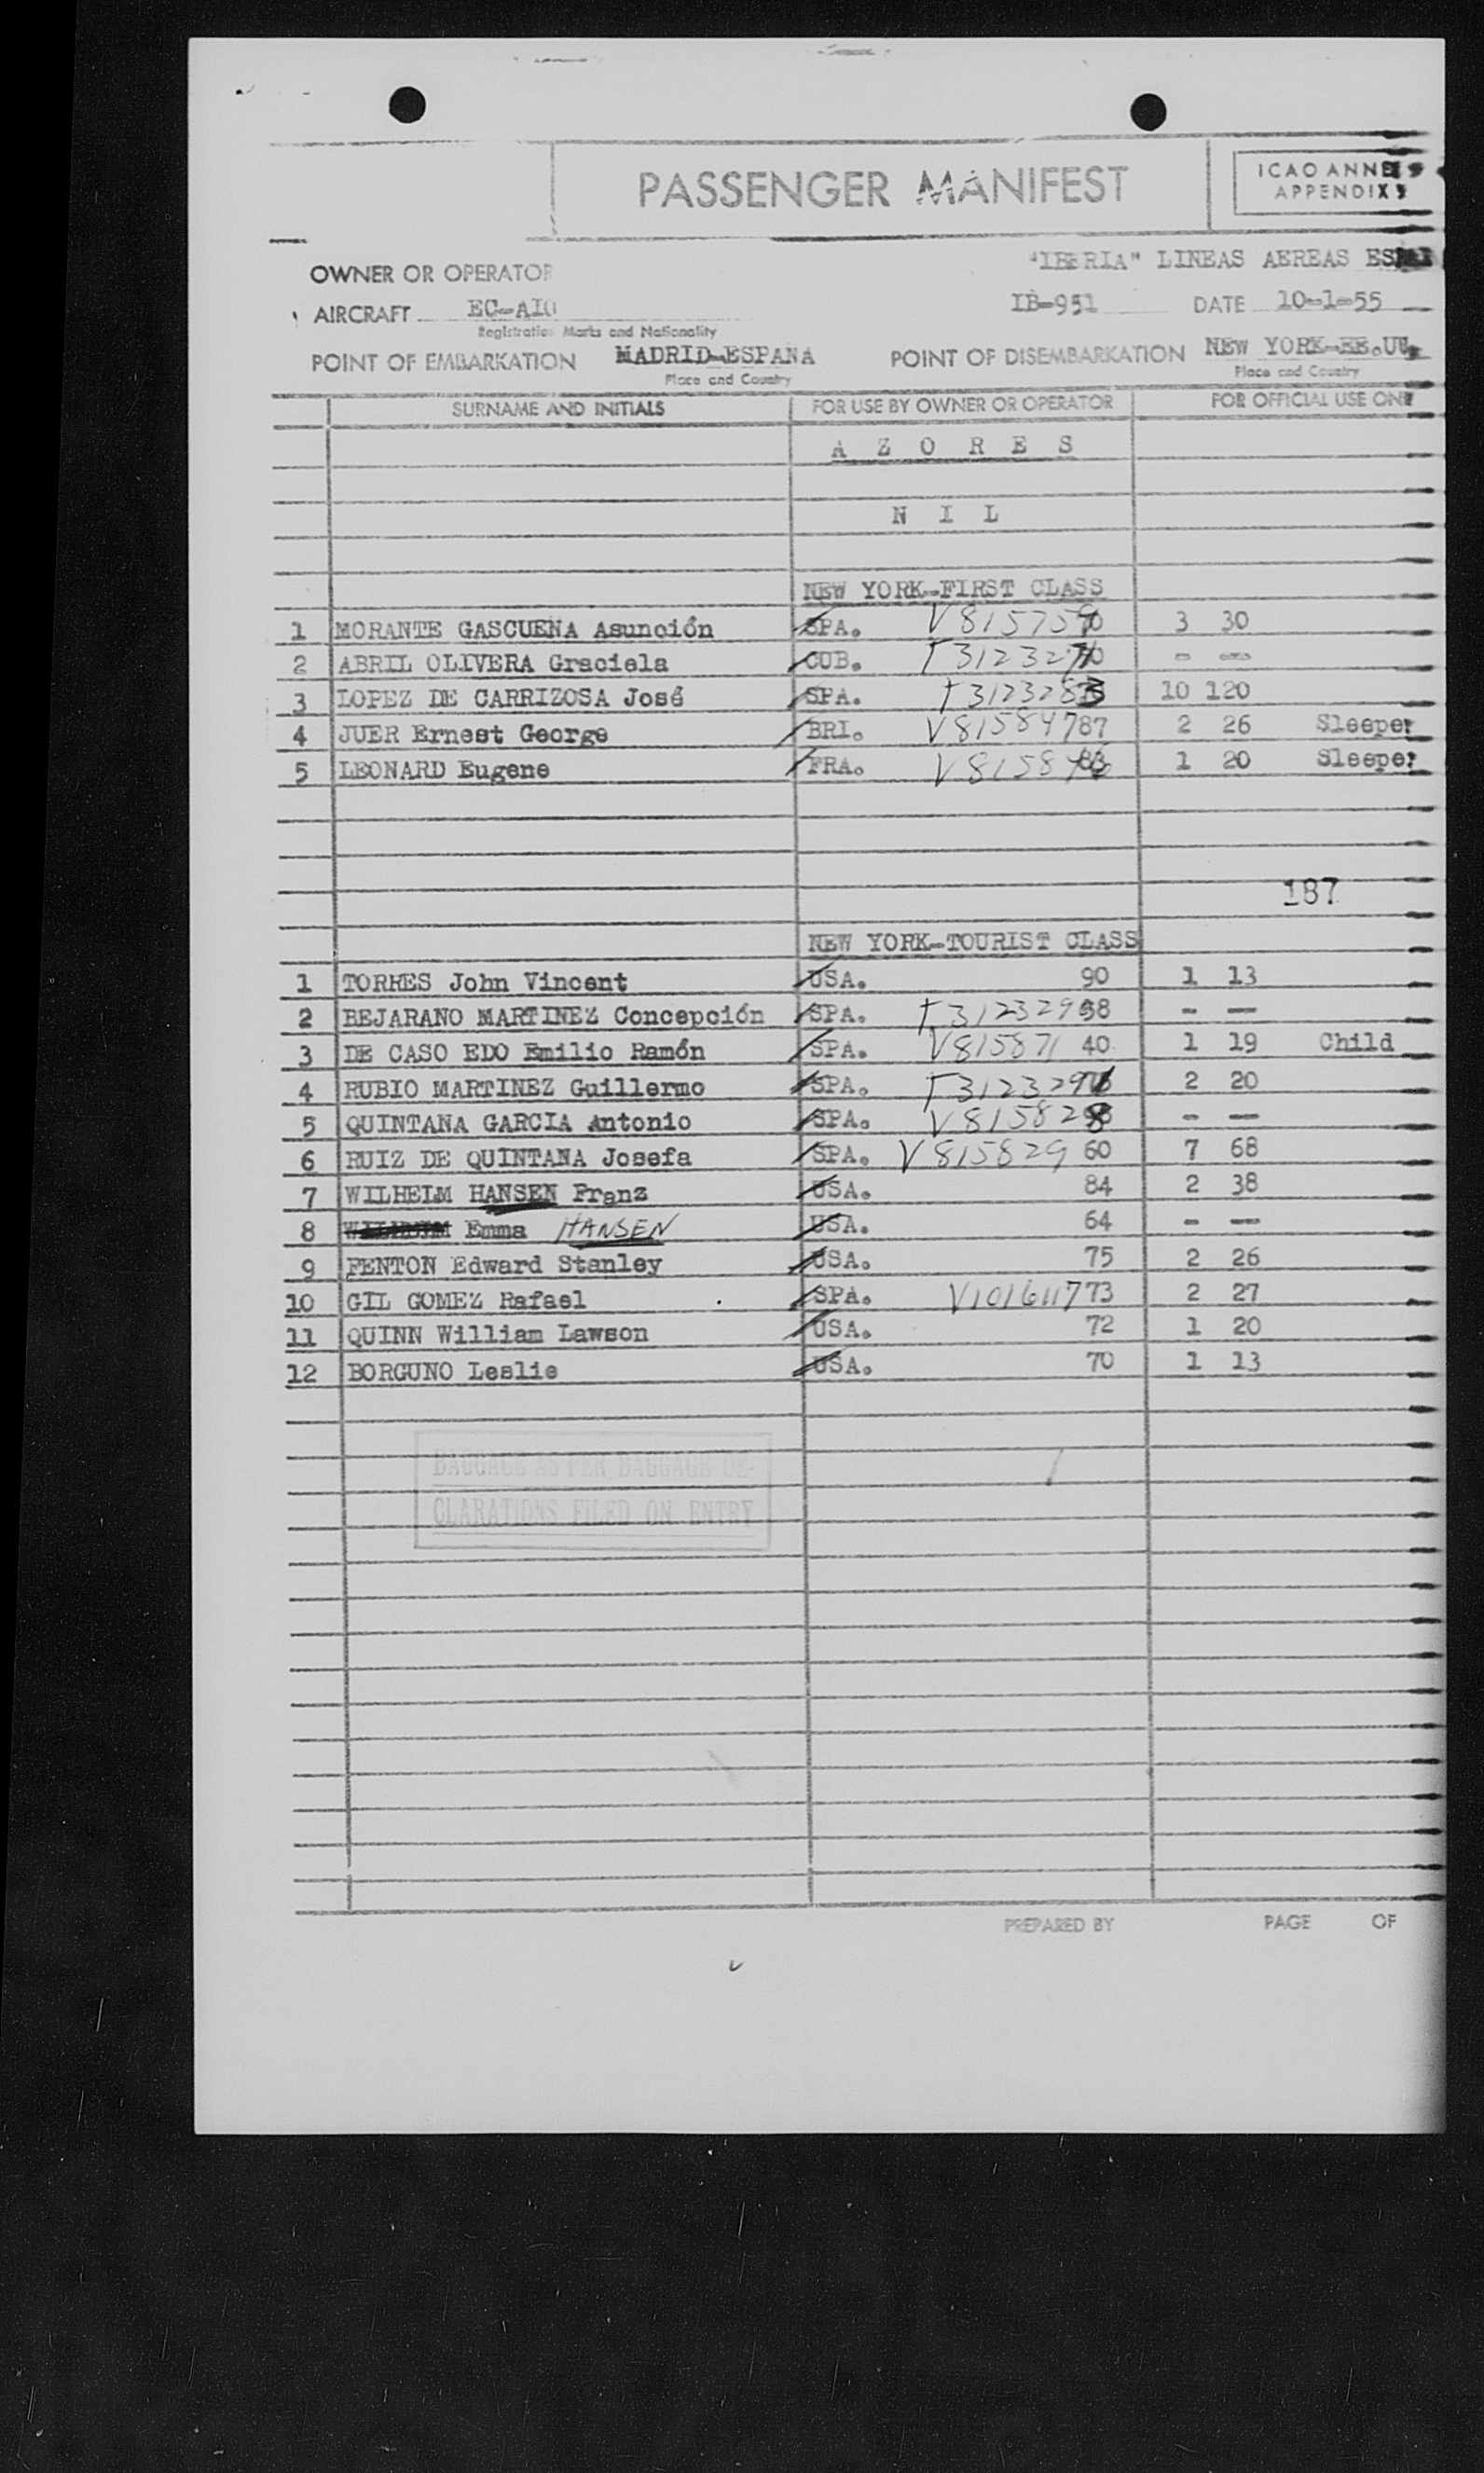 PASSENGER MANIFEST
ICAO ANNEX 9
APPENDIX
OWNER OR OPERATOR "IBERIA" LINEAS AEREAS
AIRCRAFT EC-AIO IB-951 DATE 10-1-55
Registration Marks and Nationality
POINT OF EMBARKATION MADRID-ESPANA POINT OF DISEMBARKATION NEW YORK-EE.UU.
Place and Country Place and Country
SURNAME AND INITIALS FOR USE BY OWNER OR OPERATOR FOR OFFICIAL USE ONLY
A Z O R E S
N I L
NEW YORK-FIRST CLASS
1 MORANTE GASCUENA Asunción SPA. 3 30
2 ABRIL OLIVERA Graciela CUB. - -
3 LOPEZ DE CARRIZOSA José SPA. 10 120
4 JUER Ernest George BRI. V815847 87 2 26 Sleeper
5 LEONARD Eugene FRA. 1 20 Sleeper
187
NEW YORK-TOURIST CLASS
1 TORRES John Vincent USA. 90 1 13
2 BEJARANO MARTINEZ Concepción SPA. - -
3 DE CASO EDO Emilio Ramón SPA. V815871 40 1 19 Child
4 RUBIO MARTINEZ Guillermo SPA. 2 20
5 QUINTANA GARCIA Antonio SPA. - -
6 RUIZ DE QUINTANA Josefa SPA. V815829 60 7 68
7 WILHELM HANSEN Franz USA. 84 2 38
8 Emma HANSEN USA. 64 - -
9 FENTON Edward Stanley USA. 75 2 26
10 GIL GOMEZ Rafael SPA. V1016117 73 2 27
11 QUINN William Lawson USA. 72 1 20
12 BORGUNO Leslie USA. 70 1 13
BAGGAGE AS PER BAGGAGE DE-
CLARATIONS FILED ON ENTRY
PREPARED BY PAGE OF